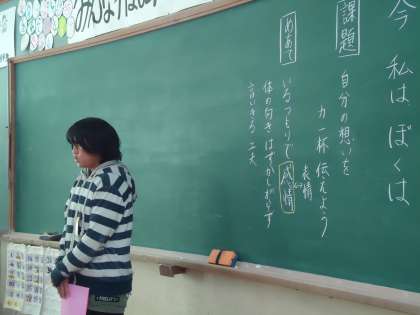 今 私は ぼくは
課題
自分の想いを
力一杯伝えよう
表情
めあて
いるつもりで感情
体の向き はずかしがらず
言いきる 工夫